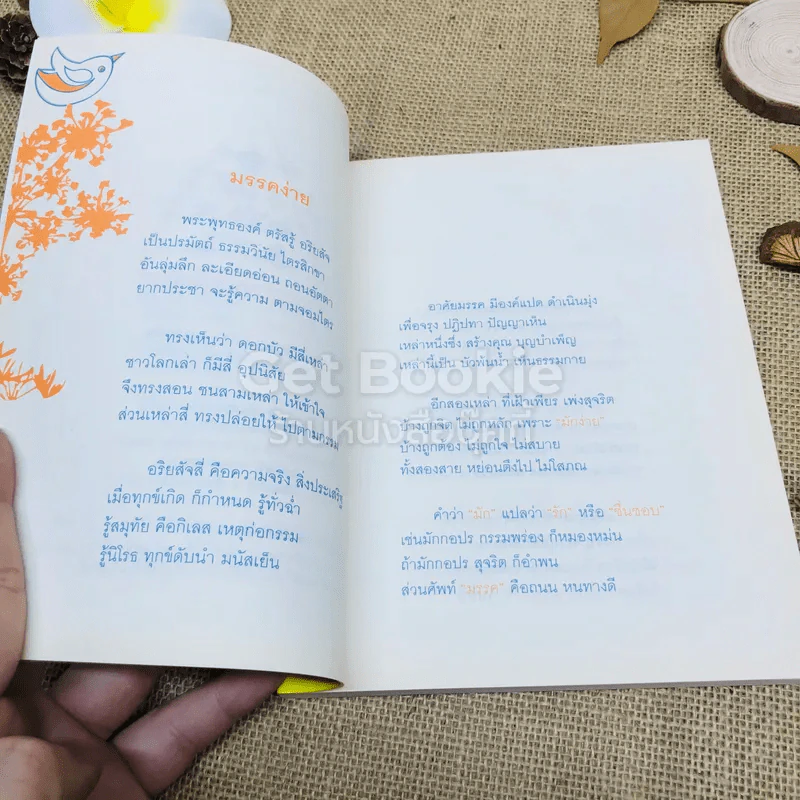 มรรคง่าย
พระพุทธองค์ ตรัสรู้ อริยสัจ
เป็นปรมัตถ์ ธรรมวินัย ไตรสิกขา
อันลุ่มลึก ละเอียดอ่อน ถอนอัตตา
ยากประชา จะรู้ความ ตามจอมไตร
ทรงเห็นว่า ดอกบัว มีสี่เหล่า
ชาวโลกเล่า ก็มีสี่ อุปนิสัย
จึงทรงสอน ชนสามเหล่า ให้เข้าใจ
ส่วนเหล่าสี่ ทรงปล่อยให้ ไปตามกรรม
อริยสัจสี่ คือความจริง สิ่งประเสริฐ
เมื่อทุกข์เกิด ก็กำหนด รู้ทั่วฉ่ำ
รู้สมุทัย คือกิเลส เหตุก่อกรรม
รู้นิโรธ ทุกข์ดับนำ มนัสเย็น
อาศัยมรรค มีองค์แปด ดำเนินมุ่ง
เพื่อจรุง ปฏิปทา ปัญญาเห็น
เหล่าหนึ่งซึ่ง สร้างคุณ บุญบำเพ็ญ
เหล่านี้เป็น บัวพ้นน้ำ เห็นธรรมกาย
อีกสองเหล่า ที่เฝ้าเพียร เพ่งสุจริต
บ้างถูกจิต ไม่ถูกหลัก เพราะ "มักง่าย"
บ้างถูกต้อง ไม่ถูกใจ ไม่สบาย
ทั้งสองสาย หย่อนตึงไป ไม่ใสภณ
คำว่า "มัก" แปลว่า "รัก" หรือ "ชื่นชอบ"
เช่นมักกอปร กรรมพร่อง ก็หมองหม่น
ถ้ามักกอปร สุจริต ก็อำพน
ส่วนศัพท์ "มรรค" คือถนน หนทางดี
Get Bookie
ร้านหนังสือบุ๊คกี้